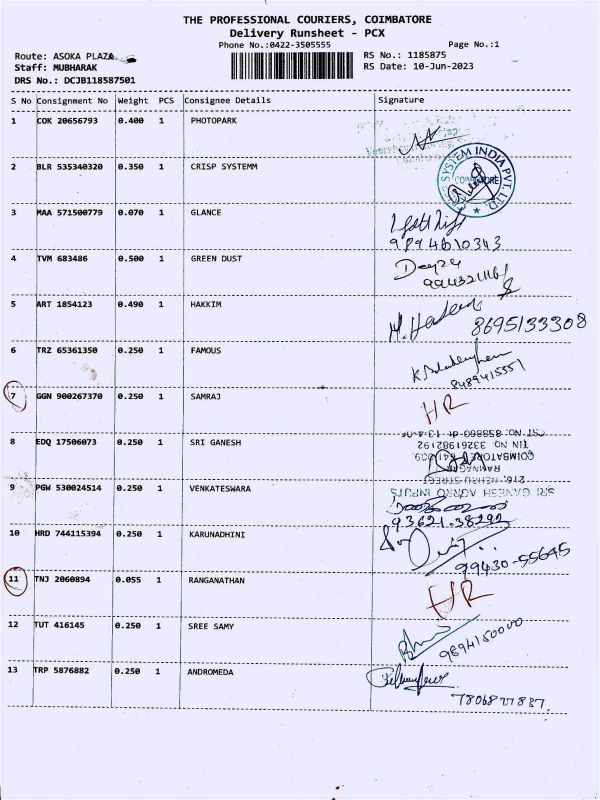 THE PROFESSIONAL COURIERS, COIMBATORE
Delivery Runsheet - PCX
Phone No.:0422-3505555
Page No.:1
Route: ASOKA PLAZA
RS No.: 1185875
Staff: MUBHARAK
RS Date: 10-Jun-2023
DRS No.: DCJB118587501
S No Consignment No Weight PCS Consignee Details Signature
1 COK 20656793 0.400 1 PHOTOPARK
2 BLR 535340320 0.350 1 CRISP SYSTEMM
SYSTEM INDIA PVT. LTD.
3 MAA 571500779 0.070 1 GLANCE
9894610343
4 TVM 683486 0.500 1 GREEN DUST
5 ART 1854123 0.490 1 HAKKIM
8695133308
6 TRZ 65361350 0.250 1 FAMOUS
8489415551
7 GGN 900267370 0.250 1 SAMRAJ HR
8 EDQ 17506073 0.250 1 SRI GANESH
CST NO: 858860 dt 13-4-
TIN NO: 33261982192
COIMBATORE-641 009
RAMNAGAR
216, NEHRU STREET
SRI GANESH AGRRO INPUTS
9 PGW 530024514 0.250 1 VENKATESWARA
93621.38292
10 HRD 744115394 0.250 1 KARUNADHINI
99430-55645
11 TNJ 2060894 0.055 1 RANGANATHAN HR
12 TUT 416145 0.250 1 SREE SAMY
9894150000
13 TRP 5876882 0.250 1 ANDROMEDA
7806877837